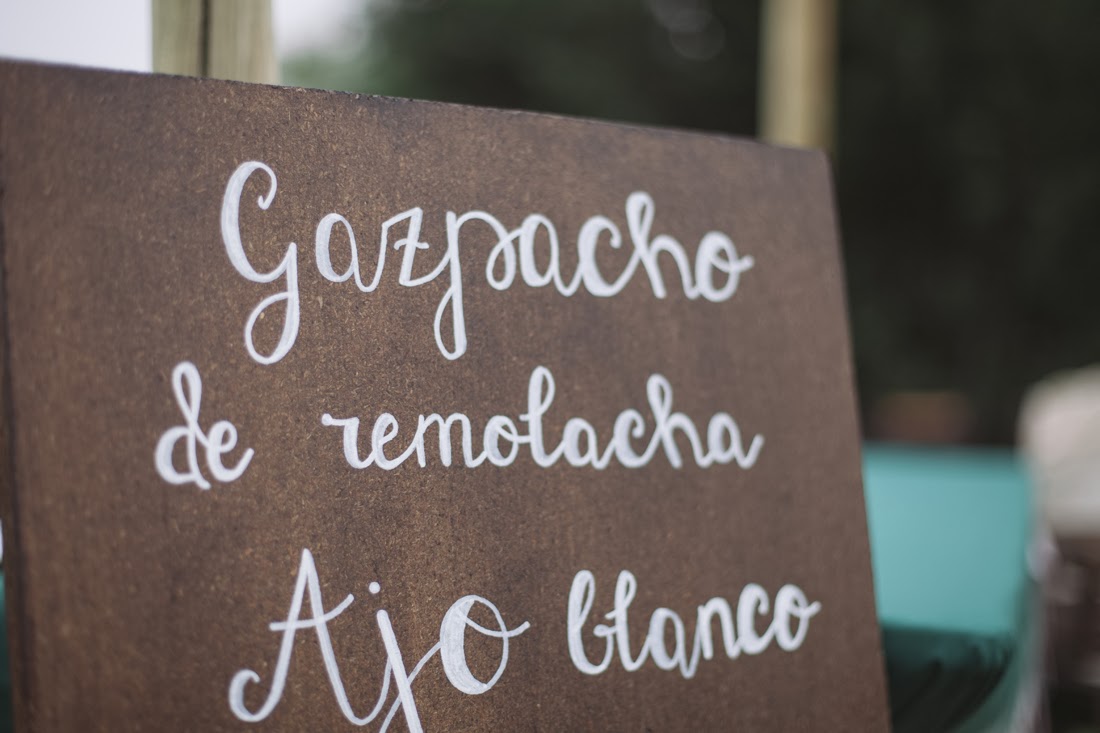 Gazpacho
de remolacha
Ajo blanco